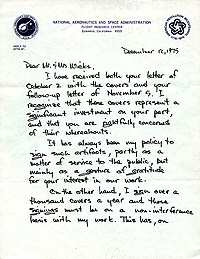 NATIONAL AERONAUTICS AND SPACE ADMINISTRATION
FLIGHT RESEARCH CENTER
EDWARDS, CALIFORNIA 93523
REPLY TO
ATTN OF:
December 12, 1975
Dear Mr. & Mrs.
I have received both your letter of
October 2 with the covers and your
follow-up letter of November 5. I
recognize that these covers represent a
significant investment on your part,
and that you are rightfully concerned
of their whereabouts.
It has always been my policy to
sign such artifacts, partly as a
matter of service to the public, but
mainly as a gesture of gratitude
for your interest in our work.
On the other hand, I sign over a
thousand covers a year and these
signings must be on a non-interference
basis with my work. This has, on